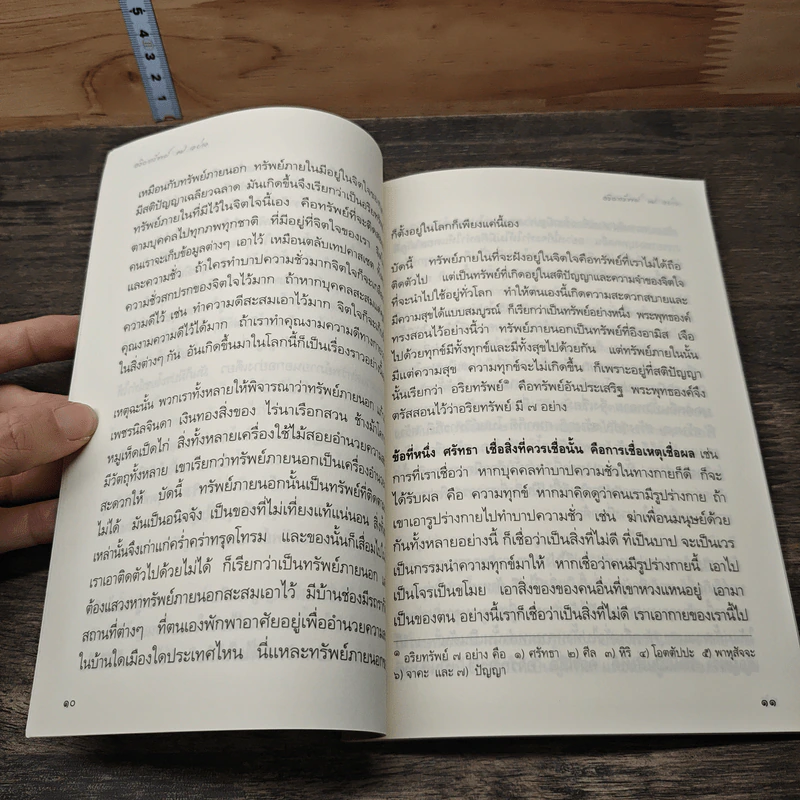 5 4 3 2 1
เหมือนกับทรัพย์ภายนอก ทรัพย์ภายในมีอยู่ในจิตใจของ
มีสติปัญญาเฉลียวฉลาด มันเกิดขึ้นจึงเรียกว่าเป็นอริยทรัพย์
ทรัพย์ภายในที่มีไว้ในจิตใจนี้เอง คือทรัพย์ที่จะติดต
ตามบุคคลไปทุกภพทุกชาติ ที่มีอยู่ที่จิตใจของเรา
คนเราจะเก็บข้อมูลต่างๆ เอาไว้ เหมือนตลับเทปคาสเซต
และความชั่ว ถ้าใครทำบาปความชั่วมากจิตใจก็จะเก็บ
ความชั่วสกปรกของจิตใจไว้มาก ถ้าหากบุคคลสะสม
ความดีไว้ เช่น ทำความดีสะสมเอาไว้มาก จิตใจก็จะเก็บ
คุณงามความดีไว้ได้มาก ถ้าเราทำคุณงามความดีทางกาย
ในสิ่งต่างๆ กัน อันเกิดขึ้นมาในโลกนี้ก็เป็นเรื่องราวอย่างนี้
เหตุฉะนั้น พวกเราทั้งหลายให้พิจารณาว่าทรัพย์ภายนอก
เพชรนิลจินดา เงินทองสิ่งของ ไร่นาเรือกสวน ช้างม้าโค
หมูเห็ดเป็ดไก่ สิ่งทั้งหลายเครื่องใช้ไม้สอยอำนวยความ
มีวัตถุทั้งหลาย เขาเรียกว่าทรัพย์ภายนอกเป็นเครื่องอำนวย
สะดวกให้ บัดนี้ ทรัพย์ภายนอกนั้นเป็นทรัพย์ที่ติดตาม
ไม่ได้ มันเป็นอนิจจัง เป็นของที่ไม่เที่ยงแท้แน่นอน สิ่ง
เหล่านั้นจึงเก่าแก่คร่ำคร่าทรุดโทรม และของนั้นก็เสื่อมไป
เราเอาติดตัวไปด้วยไม่ได้ ก็เรียกว่าเป็นทรัพย์ภายนอก
ต้องแสวงหาทรัพย์ภายนอกสะสมเอาไว้ มีบ้านช่องมีรถรา
สถานที่ต่างๆ ที่ตนเองพักพาอาศัยอยู่เพื่ออำนวยความ
ในบ้านใดเมืองใดประเทศไหน นี่แหละทรัพย์ภายนอก
๑๐
ก็ตั้งอยู่ในโลกก็เพียงแค่นี้เอง
บัดนี้ ทรัพย์ภายในที่จะฝังอยู่ในจิตใจคือทรัพย์ที่เราไม่ได้ถือ
ติดตัวไป แต่เป็นทรัพย์ที่เกิดอยู่ในสติปัญญาและความจำของจิตใจ
ที่จะนำไปใช้อยู่ทั่วโลก ทำให้ตนเองนี้เกิดความสะดวกสบายและ
มีความสุขได้แบบสมบูรณ์ ก็เรียกว่าเป็นทรัพย์อย่างหนึ่ง พระพุทธองค์
ทรงสอนไว้อย่างนี้ว่า ทรัพย์ภายนอกเป็นทรัพย์ที่อิงอามิส เจือ
ไปด้วยทุกข์มีทั้งทุกข์และมีทั้งสุขไปด้วยกัน แต่ทรัพย์ภายในนั้น
มีแต่ความสุข ความทุกข์จะไม่เกิดขึ้น ก็เพราะอยู่ที่สติปัญญา
นั้นเรียกว่า อริยทรัพย์๑ คือทรัพย์อันประเสริฐ พระพุทธองค์จึง
ตรัสสอนไว้ว่าอริยทรัพย์ มี ๗ อย่าง
ข้อที่หนึ่ง ศรัทธา เชื่อสิ่งที่ควรเชื่อนั้น คือการเชื่อเหตุเชื่อผล เช่น
การที่เราเชื่อว่า หากบุคคลทำบาปความชั่วในทางกายก็ดี ก็จะ
ได้รับผล คือ ความทุกข์ หากมาคิดดูว่าคนเรามีรูปร่างกาย ถ้า
เขาเอารูปร่างกายไปทำบาปความชั่ว เช่น ฆ่าเพื่อนมนุษย์ด้วย
กันทั้งหลายอย่างนี้ ก็เชื่อว่าเป็นสิ่งที่ไม่ดี ที่เป็นบาป จะเป็นเวร
เป็นกรรมนำความทุกข์มาให้ หากเชื่อว่าคนมีรูปร่างกายนี้ เอาไป
เป็นโจรเป็นขโมย เอาสิ่งของของคนอื่นที่เขาหวงแหนอยู่ เอามา
เป็นของตน อย่างนี้เราก็เชื่อว่าเป็นสิ่งที่ไม่ดี เราเอากายของเรานี้ไป
๑ อริยทรัพย์ ๗ อย่าง คือ ๑) ศรัทธา ๒) ศีล ๓) หิริ ๔) โอตตัปปะ ๕) พาหุสัจจะ
๖) จาคะ และ ๗) ปัญญา
๑๑